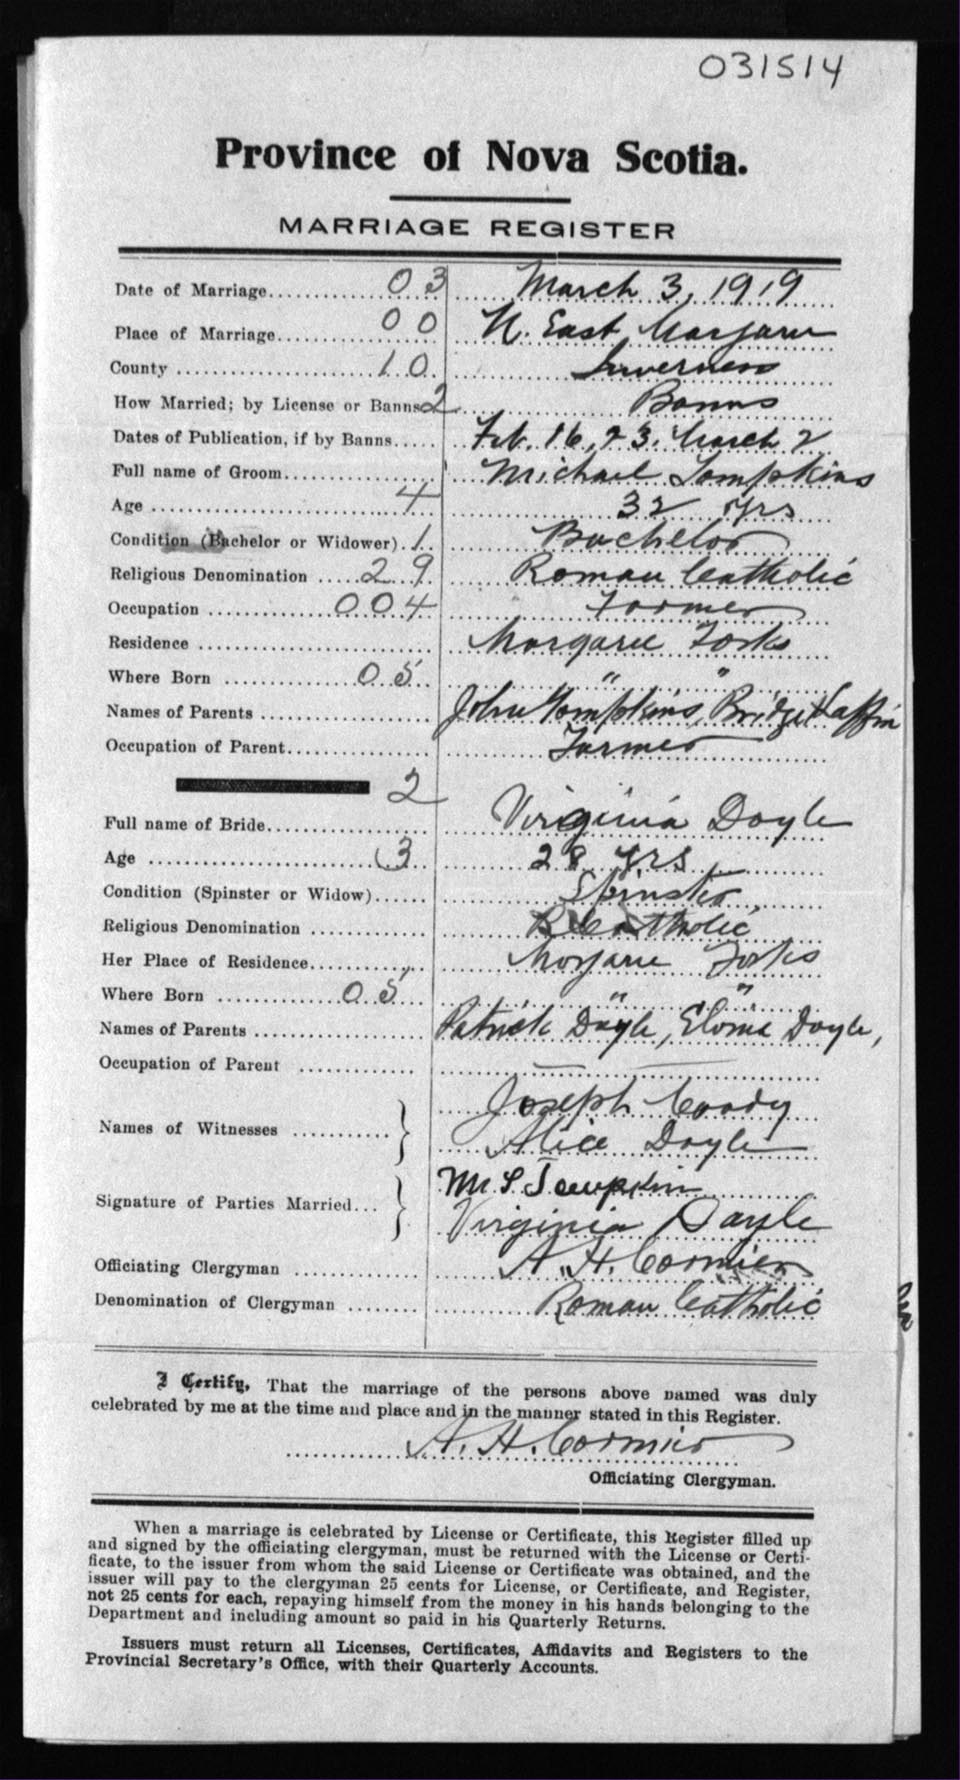 031514
Province of Nova Scotia.
MARRIAGE REGISTER
Date of Marriage 03 March 3, 1919
Place of Marriage 00 N. East Margaree
County 10 Inverness
How Married; by License or Banns 2 Banns
Dates of Publication, if by Banns Feb. 16, 23. March 2
Full name of Groom Michael Tompkins
Age 4 32 yrs
Condition (Bachelor or Widower) 1 Bachelor
Religious Denomination 29 Roman Catholic
Occupation 004 Farmer
Residence Margaree Forks
Where Born 05 " "
Names of Parents John Tompkins, Bridget Laffin
Occupation of Parent Farmer
2
Full name of Bride Virginia Doyle
Age 3 28 yrs
Condition (Spinster or Widow) Spinster
Religious Denomination R Catholic
Her Place of Residence Margaree Forks
Where Born 05 " "
Names of Parents Patrick Doyle, Doyle,
Occupation of Parent —
Names of Witnesses } Joseph Coady
Alice Doyle
Signature of Parties Married } M. S. Tompkins
Virginia Doyle
Officiating Clergyman A. H. Cormier
Denomination of Clergyman Roman Catholic
I Certify, That the marriage of the persons above named was duly
celebrated by me at the time and place and in the manner stated in this Register.
A. H. Cormier
Officiating Clergyman.
When a marriage is celebrated by License or Certificate, this Register filled up
and signed by the officiating clergyman, must be returned with the License or Certi-
ficate, to the issuer from whom the said License or Certificate was obtained, and the
issuer will pay to the clergyman 25 cents for License, or Certificate, and Register,
not 25 cents for each, repaying himself from the money in his hands belonging to the
Department and including amount so paid in his Quarterly Returns.
Issuers must return all Licenses, Certificates, Affidavits and Registers to the
Provincial Secretary's Office, with their Quarterly Accounts.